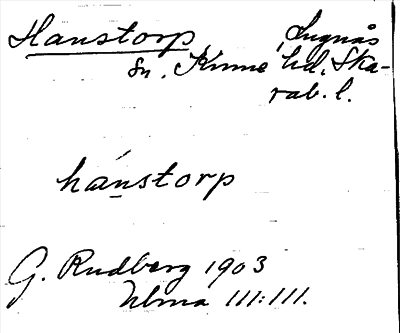 Hanstorp Lugnås
sn. Kinne hd, Ska-
rab. l.
hánstorp
G. Rudberg 1903
Ulma 111:111.